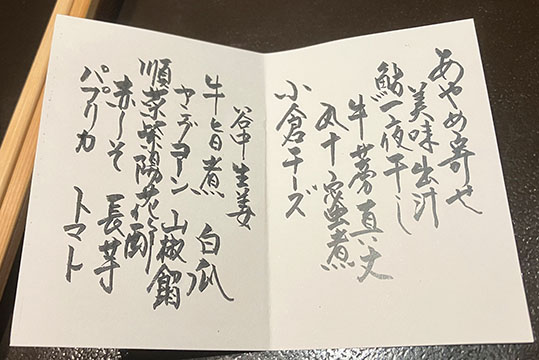 あやめ寄せ
美味出汁
鮎一夜干し
牛蒡真丈
丸十蜜煮
小倉チーズ
谷中生姜
牛旨煮 白瓜
ヤングコーン 山椒餡
順菜紫陽花酢
赤しそ 長芋
パプリカ トマト